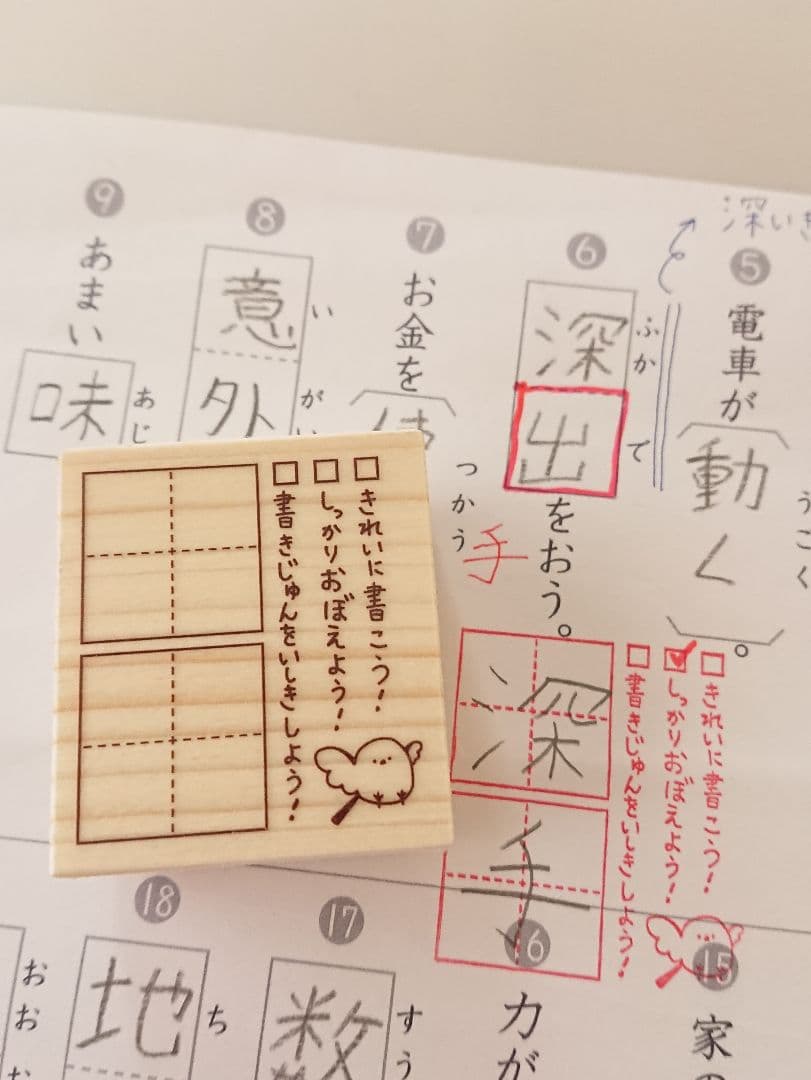 深いき
❺
電車が
動く
。
うごく
❻
深出
ふかで
をおう。
手
❼
お金を
つかう
❽
意外
いがい
❾
あまい
味
あじ
□きれいに書こう！
□しっかりおぼえよう！
□書きじゅんをいしきしよう！
□きれいに書こう！
☑しっかりおぼえよう！
□書きじゅんをいしきしよう！
深
手
⓯
家の
⓰
力が
⓱
数
すう
⓲
地
ち
おお